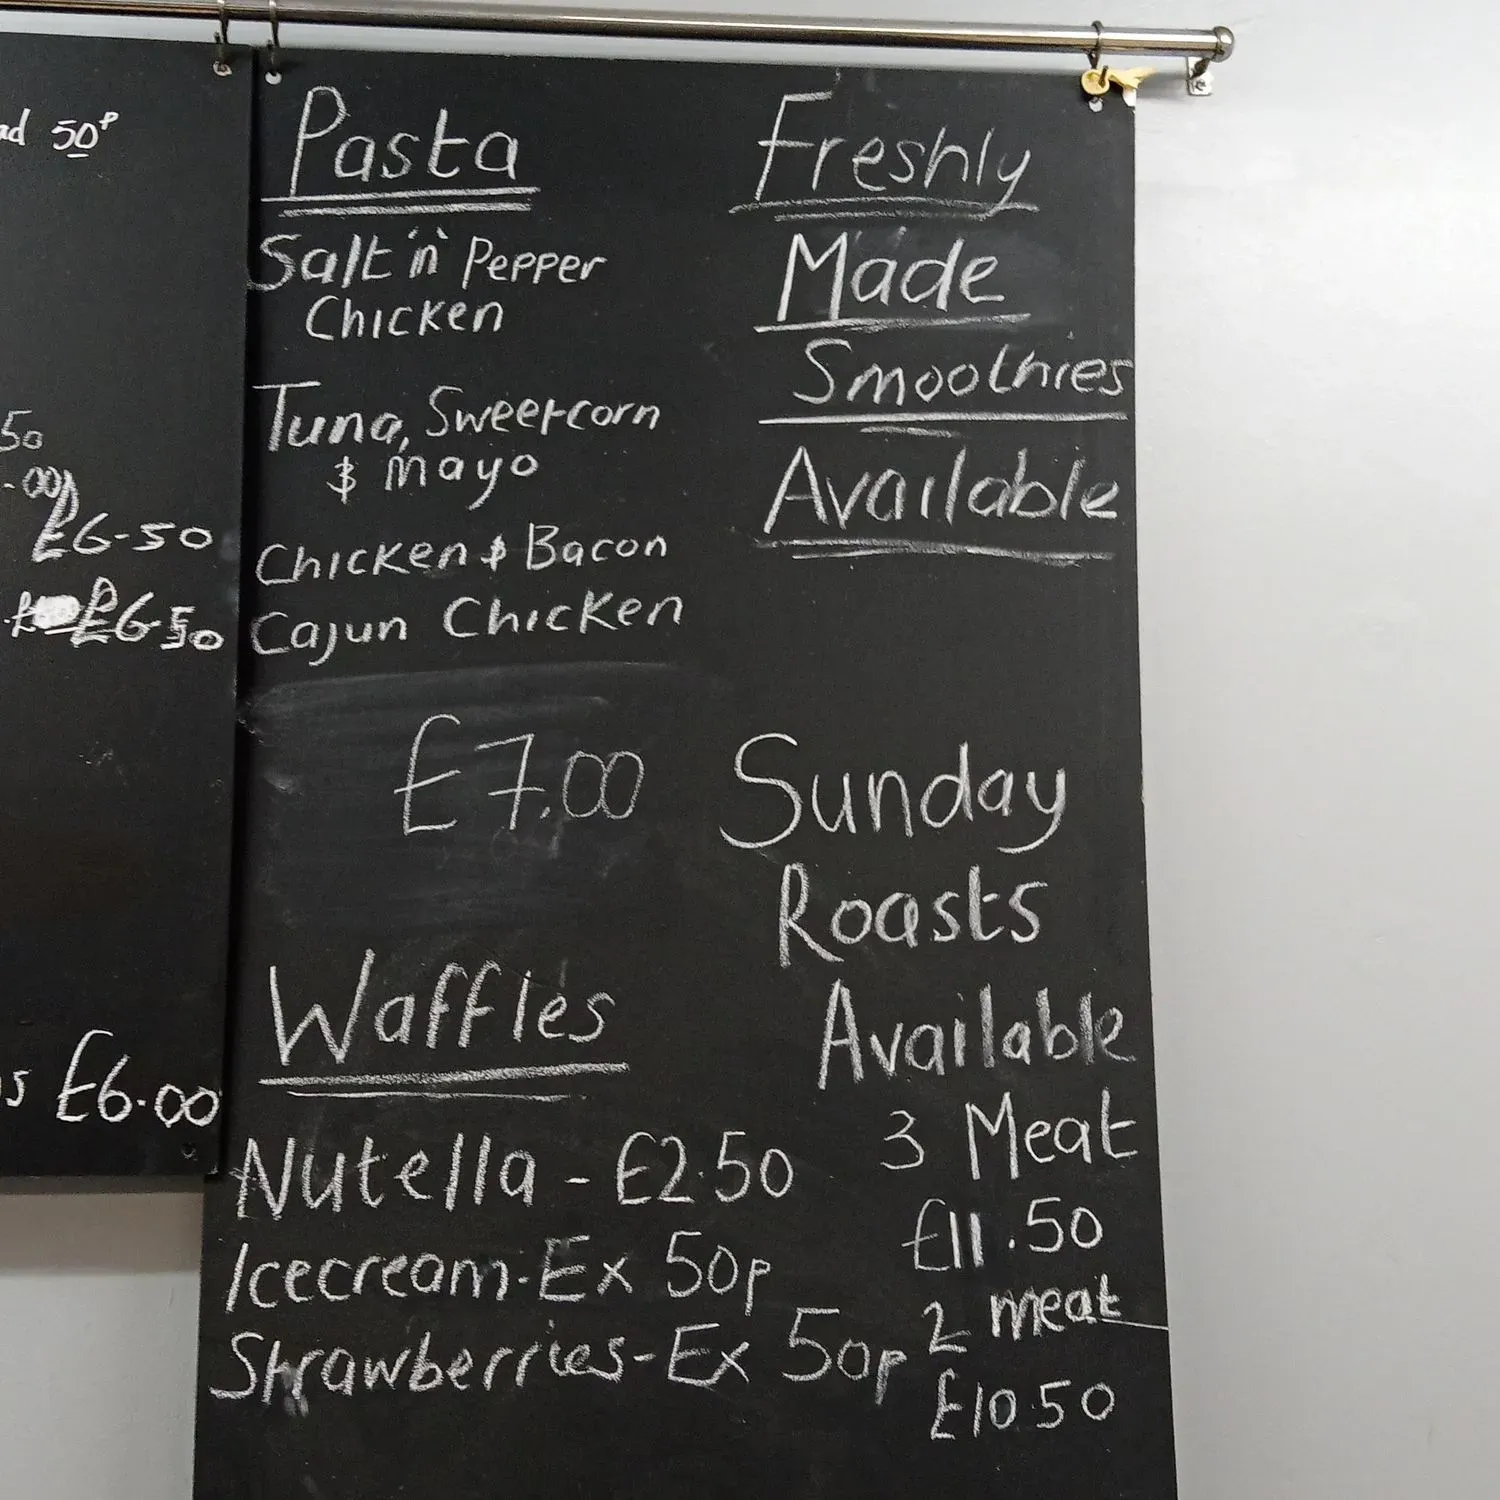 50P
50
.00
£6-50
£6-50
s £6.00
Pasta
Salt 'n' Pepper
Chicken
Tuna, Sweetcorn
& Mayo
Chicken & Bacon
Cajun Chicken
£7.00
Waffles
Nutella - £2.50
Icecream - Ex 50p
Strawberries - Ex 50p
Freshly
Made
Smoothies
Available
Sunday
Roasts
Available
3 Meat
£11.50
2 meat
£10.50